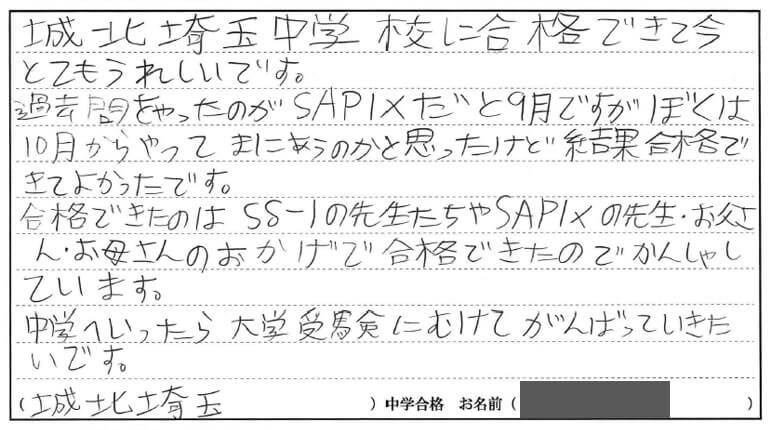 城北埼玉中学校に合格できて今
とてもうれしいです。
過去問をやったのがSAPIXだと9月ですがぼくは
10月からやってまにあうのかと思ったけど結果合格で
きてよかったです。
合格できたのはSS-1の先生たちやSAPIXの先生・お父さ
ん・お母さんのおかげで合格できたのでかんしゃし
ています。
中学へいったら大学受験にむけてがんばっていきた
いです。
(城北埼玉)中学合格 お名前()